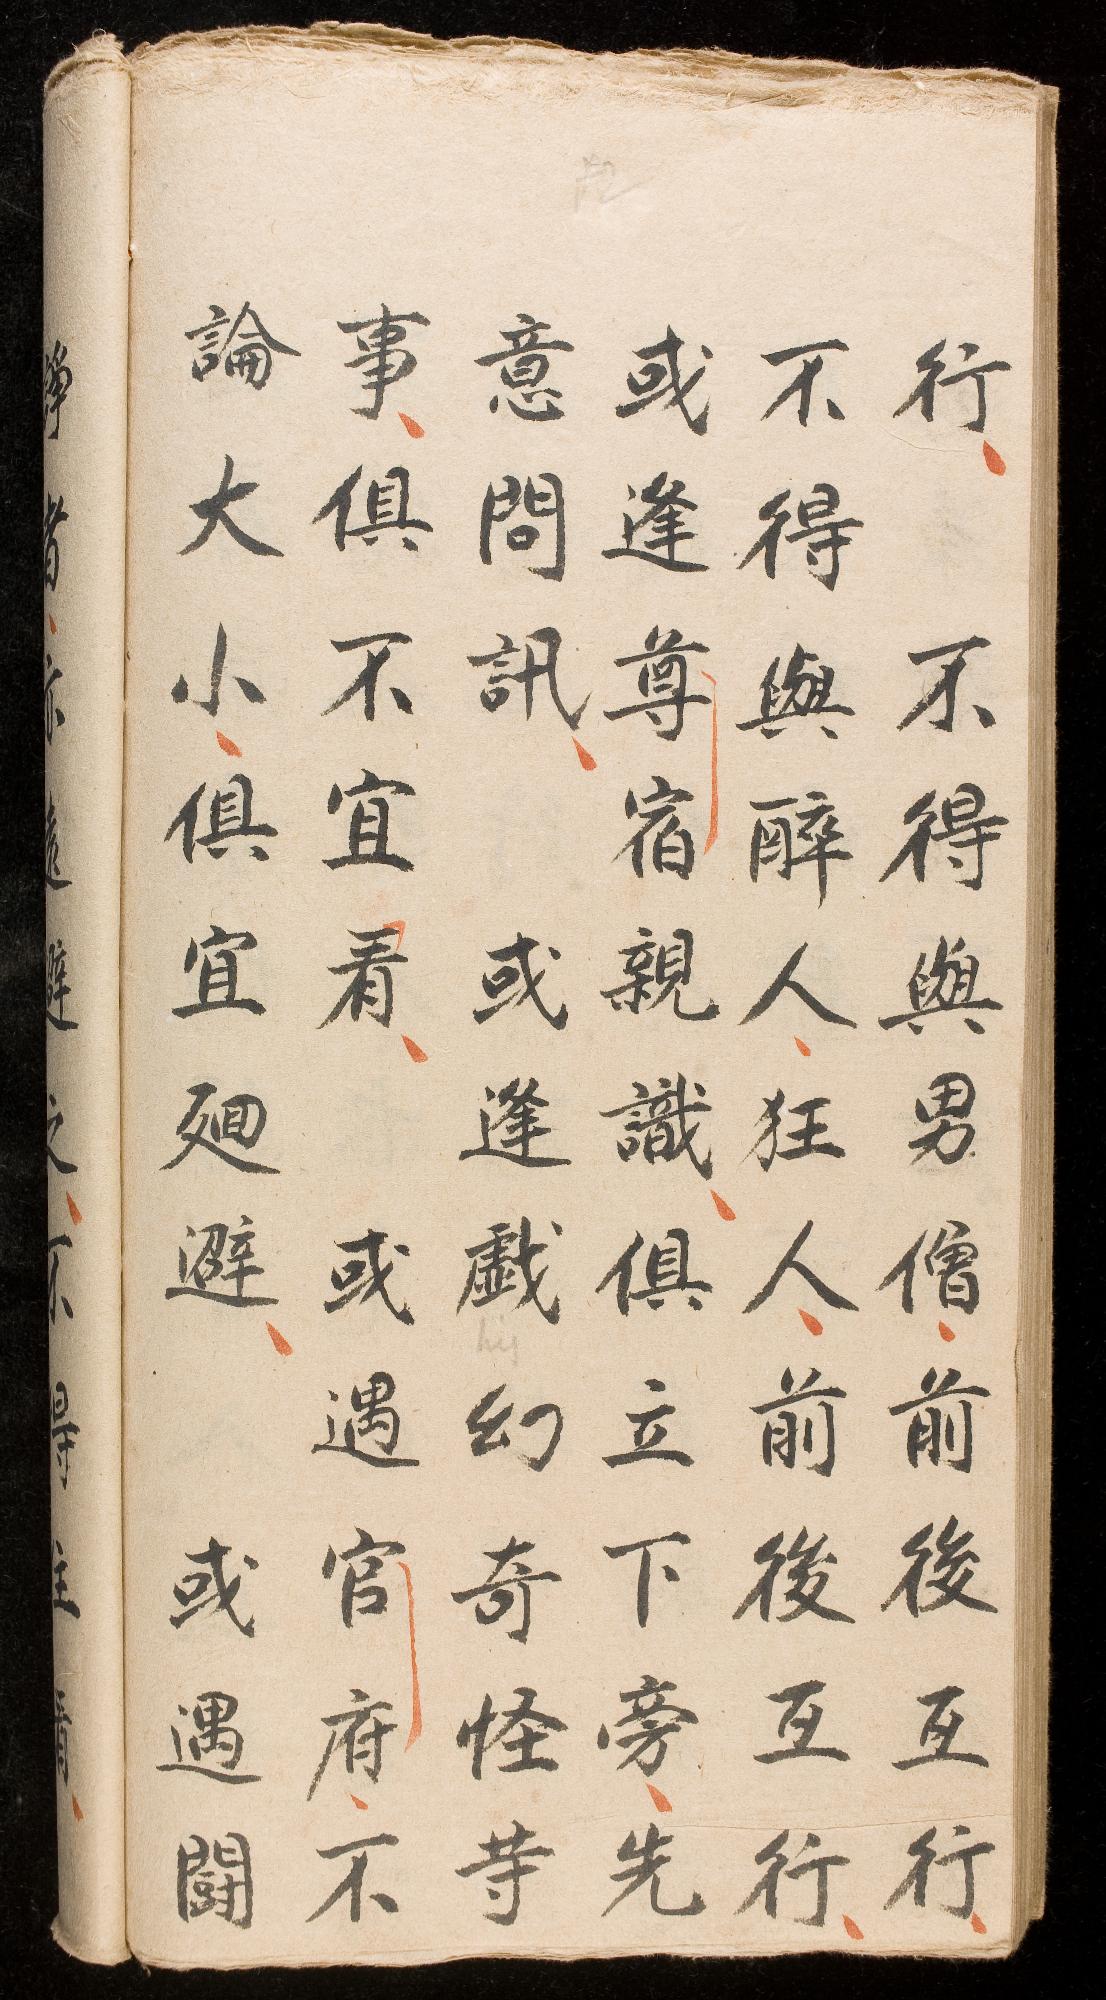 行、不得與男僧、前後互行、
不得與醉人、狂人、前後互行、
或逢尊宿親識、俱立下旁、先
意問訊、或逢戲幻奇怪等
事、俱不宜看、或遇官府、不
論大小、俱宜廻避、或遇鬪
諍者、亦遠避之、不得住看、